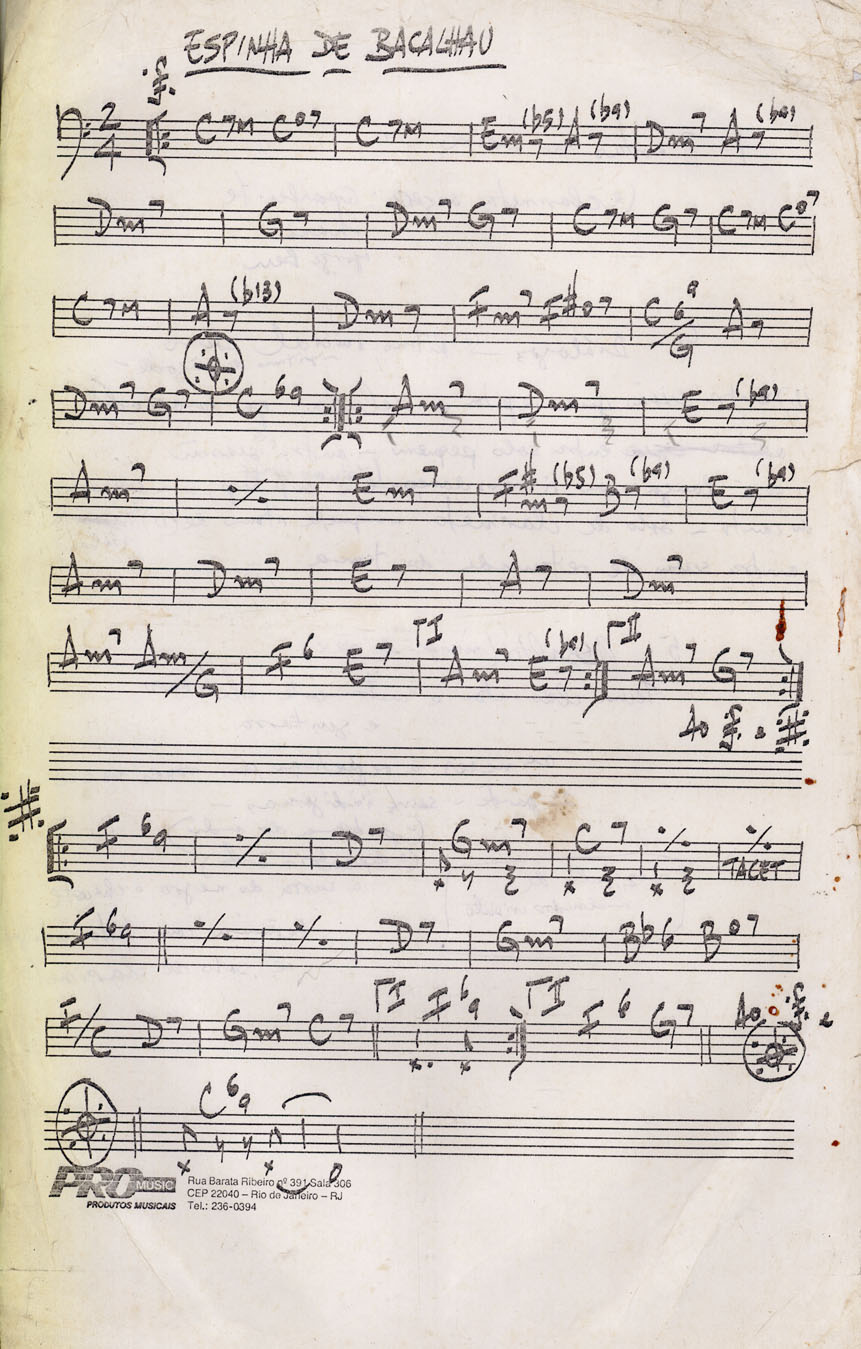 ESPINHA DE BACALHAU
2/4 C7M C°7 | C7M | Em7(b5) A7(b9) | Dm7 A7(b9)
Dm7 | G7 | Dm7 G7 | C7M G7 | C7M C°7
C7M | A7(b13) | Dm7 | Fm7 F#°7 | C6/9/G A7
Dm7 G7 | C69 | Am7 | Dm7 | E7(b9)
Am7 | % | Em7 | F#m7(b5) B7(b9) | E7(b9)
Am7 | Dm7 | E7 | A7 | Dm7
Am7 Am/G | F6 E7 | I Am7 E7(b9) | II Am7 G7
Ao 𝄋 e
F69 | % | D7 | Gm7 | C7 | % | %
TACET
F69 | % | % | D7 | Gm7 | Bb6 B°7
F/C D7 | Gm7 C7 | I F69 | II F6 G7 | Ao 𝄋 e
C69
PRO MUSIC
PRODUTOS MUSICAIS
Rua Barata Ribeiro nº 391 Sala 306
CEP 22040 – Rio de Janeiro – RJ
Tel.: 236-0394